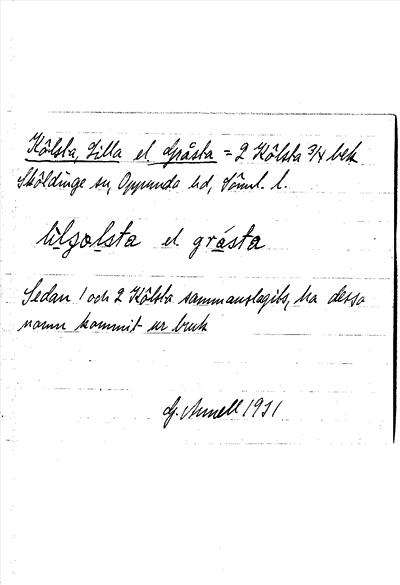 Kölsta, Lilla el. Gråsta = 2 Kölsta 3/4 bek
Sköldinge sn, Oppunda hd, Söml. l.
lilʒølsta el gråsta
Sedan 1 och 2 Kölsta sammanslagits, ha dessa
namn kommit ur bruk
G. Annell 1911